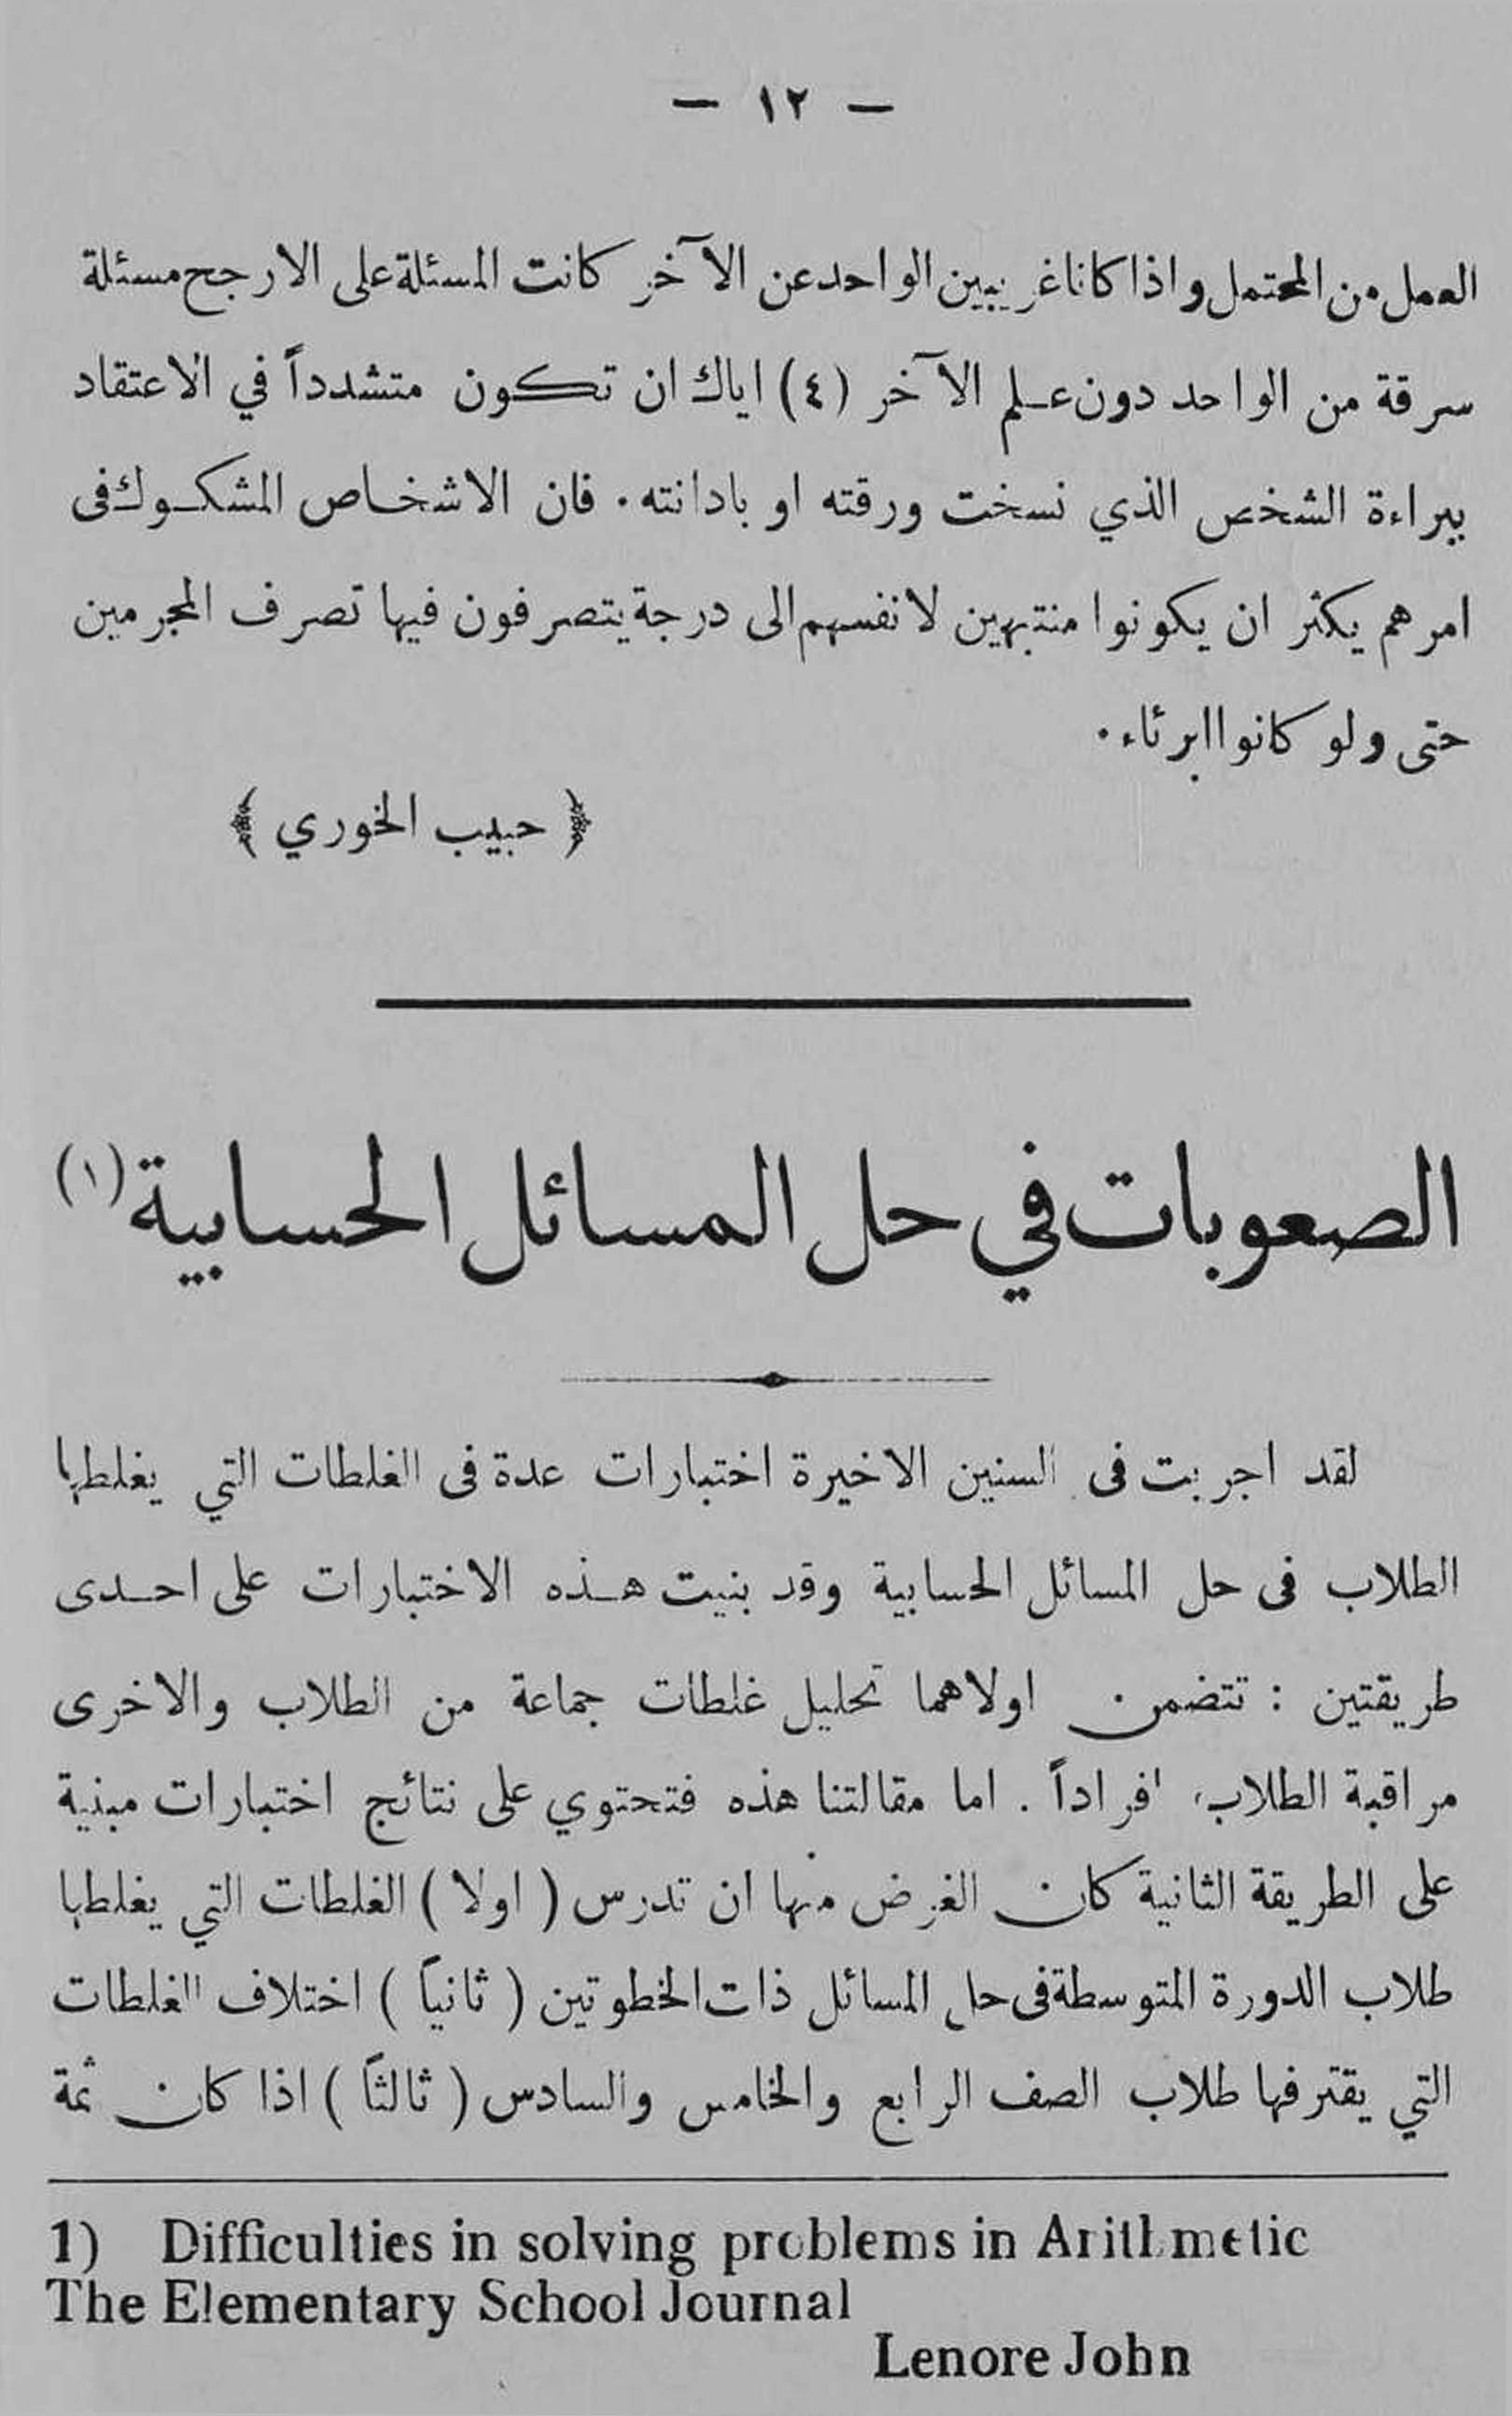 — ١٢ —
العمل من المحتمل واذا كانا غريبين الواحد عن الآخر كانت المسئلة على الارجح مسئلة
سرقة من الواحد دون علم الآخر (٤) اياك ان تكون متشدداً في الاعتقاد
ببراءة الشخص الذي نسخت ورقته او بادانته. فان الاشخاص المشكوك فى
امرهم يكثر ان يكونوا منتبهين لانفسهم الى درجة يتصرفون فيها تصرف المجرمين
حتى ولو كانوا ابرئاء.
﴿ حبيب الخوري ﴾
الصعوبات في حل المسائل الحسابية (١)
لقد اجريت فى السنين الاخيرة اختبارات عدة فى الغلطات التي يغلطها
الطلاب فى حل المسائل الحسابية وقد بنيت هذه الاختبارات على احدى
طريقتين : تتضمن اولاهما تحليل غلطات جماعة من الطلاب والاخرى
مراقبة الطلاب، افراداً . اما مقالتنا هذه فتحتوي على نتائج اختبارات مبنية
على الطريقة الثانية كان الغرض منها ان تدرس ( اولا ) الغلطات التي يغلطها
طلاب الدورة المتوسطة فى حل المسائل ذات الخطوتين ( ثانياً ) اختلاف الغلطات
التي يقترفها طلاب الصف الرابع والخامس والسادس ( ثالثاً ) اذا كان ثمة
1) Difficulties in solving problems in Arithmetic
The Elementary School Journal
Lenore John